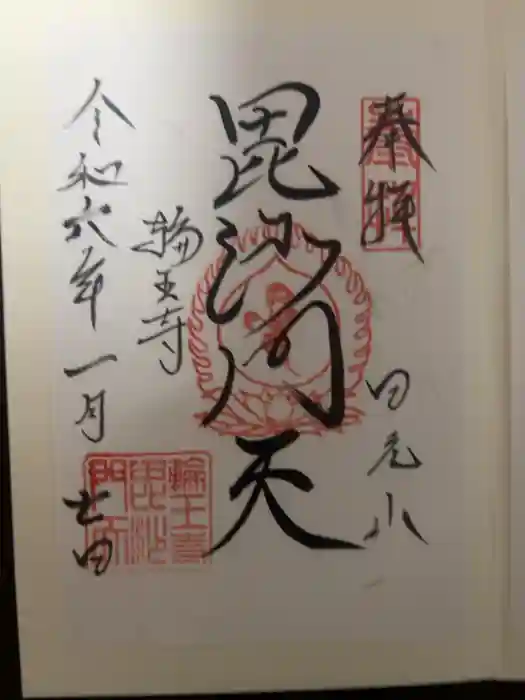 奉拝
日光山
毘沙門天
輪王寺
令和六年一月七日
輪王寺
毘沙
門